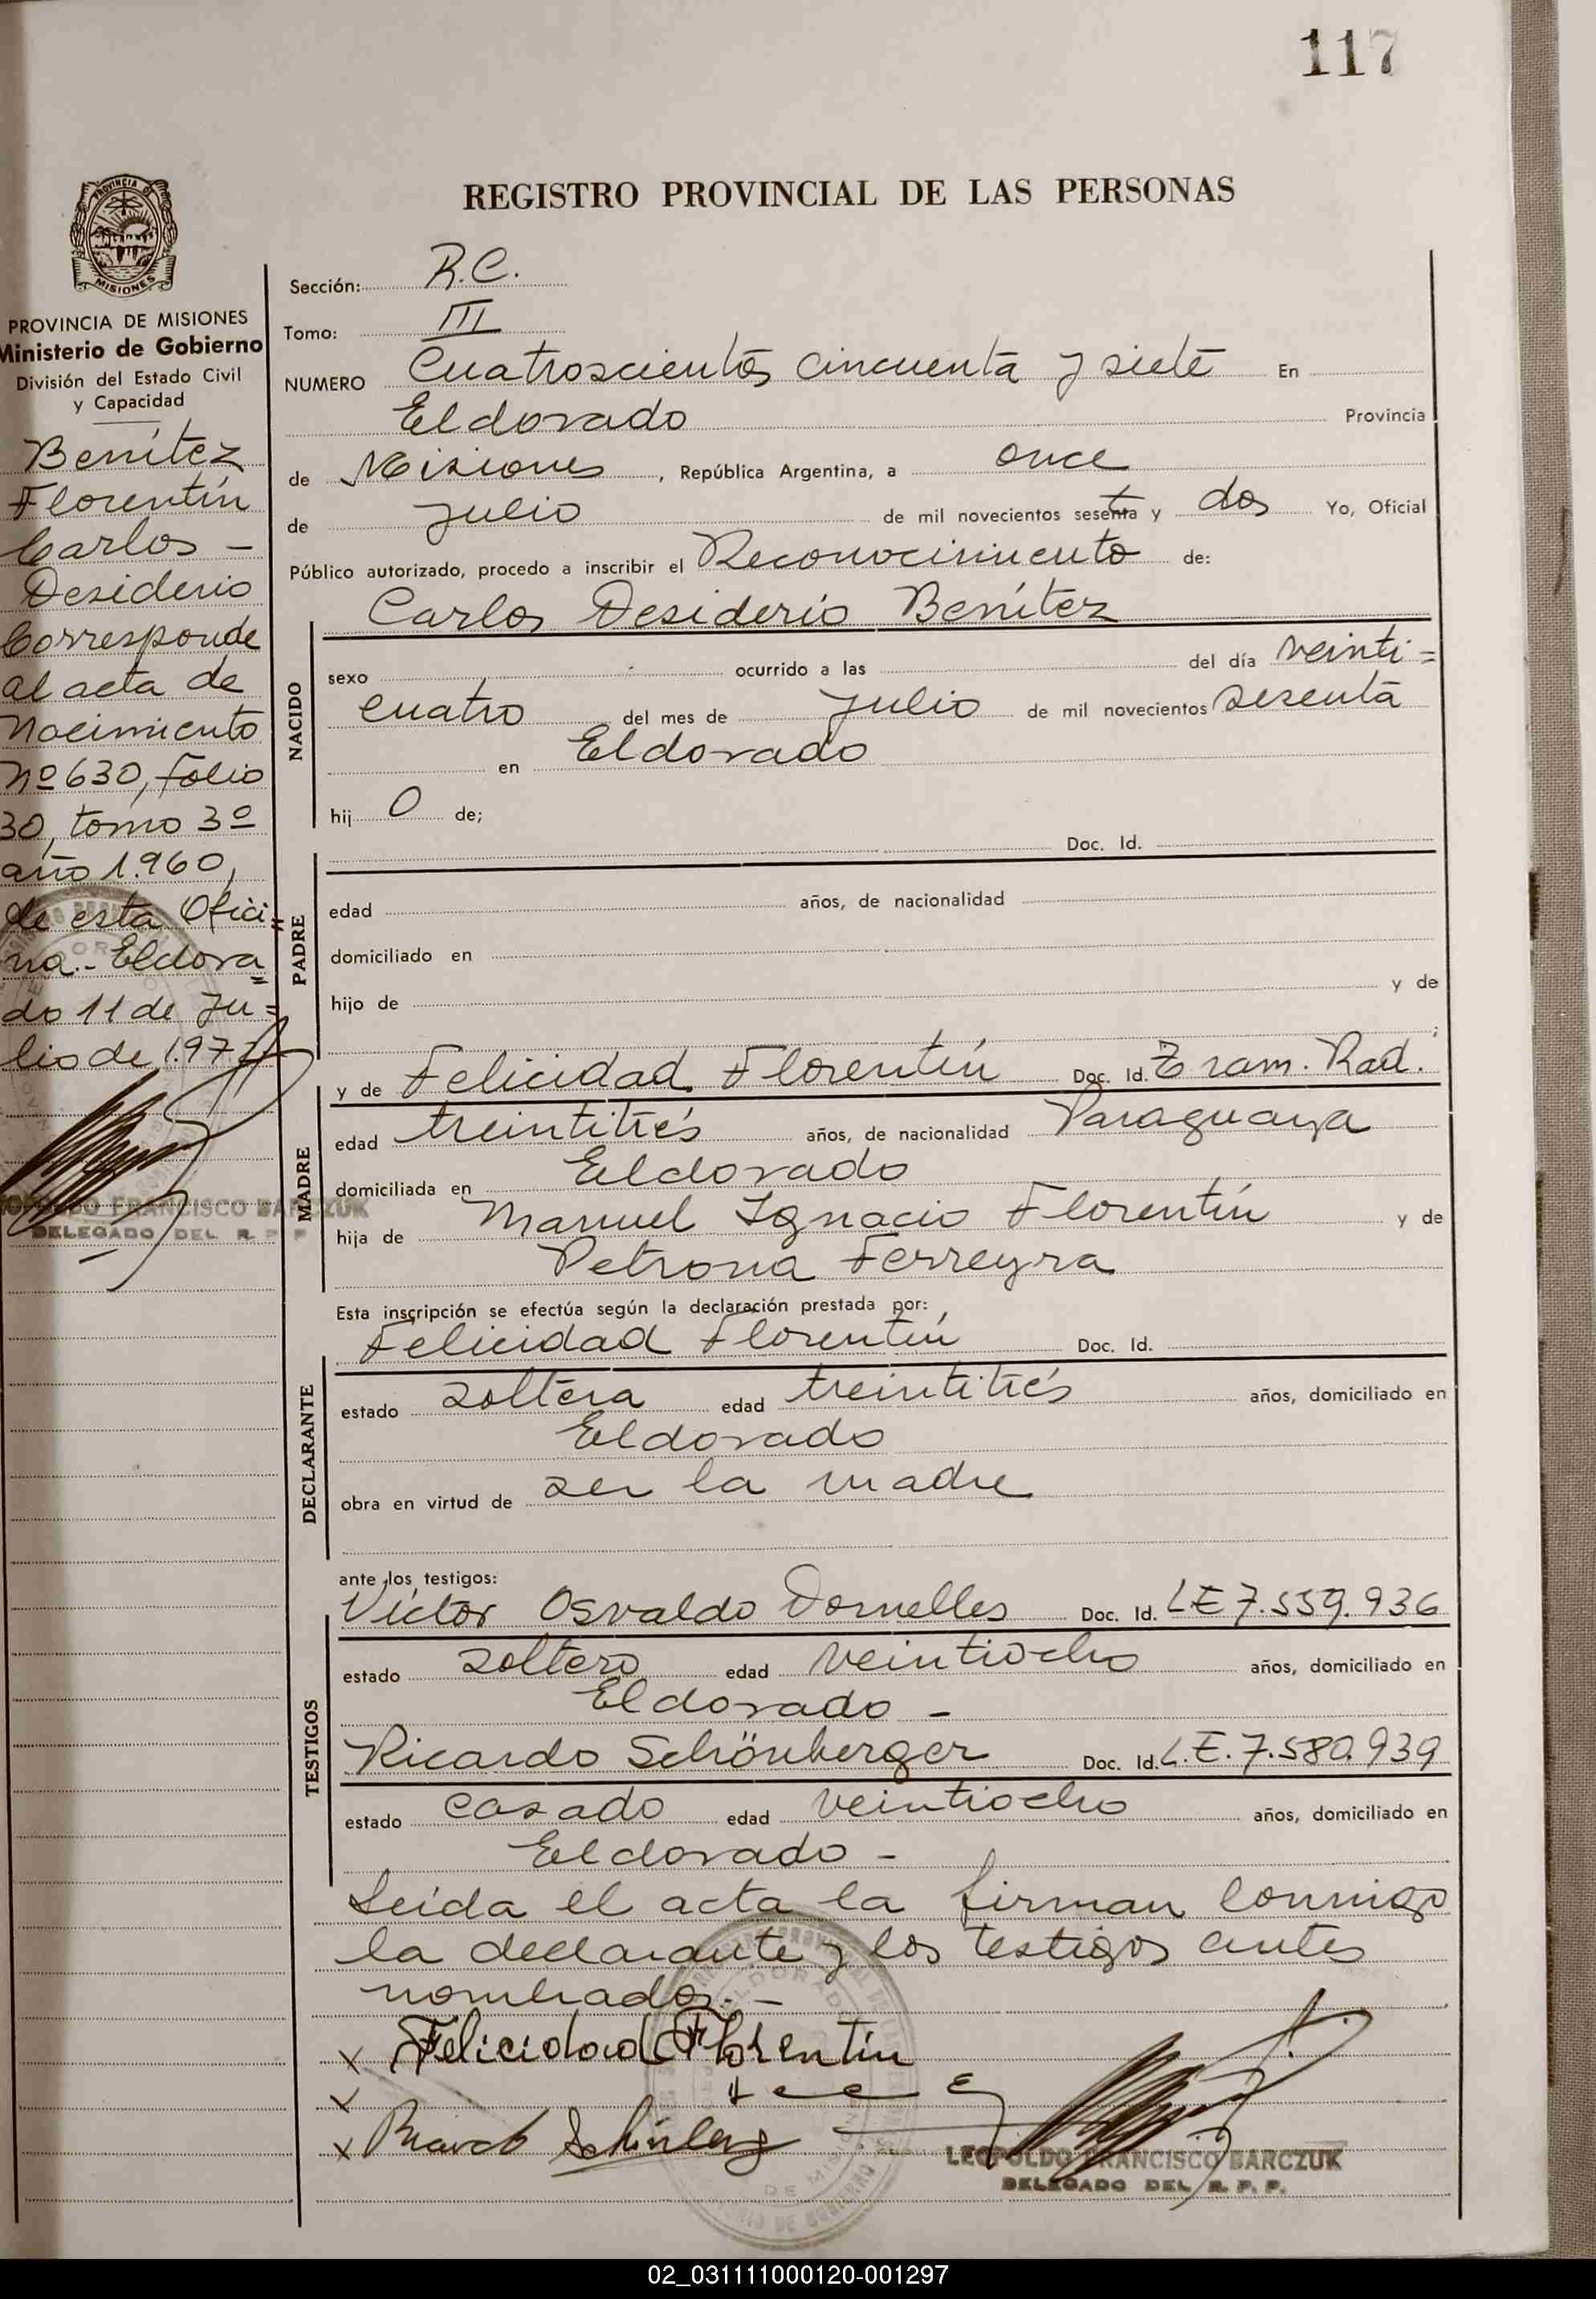 117
REGISTRO PROVINCIAL DE LAS PERSONAS
PROVINCIA DE MISIONES
Ministerio de Gobierno
División del Estado Civil
y Capacidad
Benítez
Florentín
Carlos -
Desiderio
Corresponde
al acta de
Nacimiento
Nº 630, folio
30, tomo 3º
año 1.960,
de esta Ofici
na.- Eldora
do 11 de Ju=
lio de 1.97
FRANCISCO BARCZUK
DELEGADO DEL R. P. P.
Sección: R.C.
Tomo: III
NUMERO Cuatroscientos cincuenta y siete En
Eldorado Provincia
de Misiones, República Argentina, a once
de julio de mil novecientos sesenta y dos Yo, Oficial
Público autorizado, procedo a inscribir el Reconocimiento de:
Carlos Desiderio Benítez
NACIDO
sexo ocurrido a las del día veinti=
cuatro del mes de julio de mil novecientos sesenta
en Eldorado
hij o de;
Doc. Id.
PADRE
edad años, de nacionalidad
domiciliado en
hijo de y de
;
y de Felicidad Florentín Doc. Id. Tram. Rad.
MADRE
edad treintitrés años, de nacionalidad Paraguaya
domiciliada en Eldorado
hija de Manuel Ignacio Florentín y de
Petrona Ferreyra
Esta inscripción se efectúa según la declaración prestada por:
Felicidad Florentín Doc. Id.
DECLARANTE
estado soltera edad treintitrés años, domiciliado en
Eldorado
obra en virtud de ser la madre
ante los testigos:
Víctor Osvaldo Dornelles Doc. Id. LE 7.559.936
TESTIGOS
estado soltero edad veintiocho años, domiciliado en
Eldorado -
Ricardo Schönberger Doc. Id. L.E. 7.580.939
estado casado edad veintiocho años, domiciliado en
Eldorado -
Leída el acta la firman conmigo
la declarante y los testigos antes
nombrados.-
x Felicidad Florentín
x
x
LEOPOLDO FRANCISCO BARCZUK
DELEGADO DEL R. P. P.
02_031111000120-001297